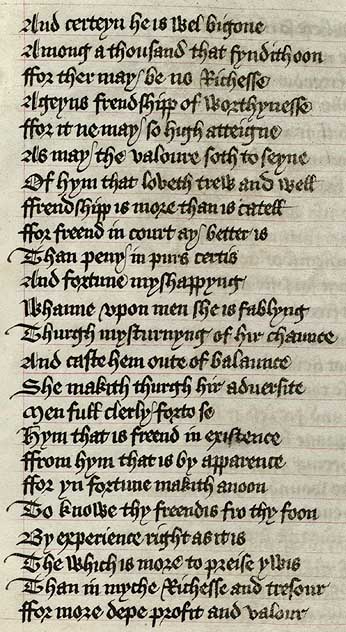 And certeyn he is wel bigone
Among a thousand that fyndith oon
ffor ther may be no Richesse
Ageyns frendshipp of worthynesse
ffor it ne may so high atteigne
As may the valoure soth to seyne
Of hym that loveth trew and well
ffrendshipp is more than is catell
ffor freend in court ay better is
Than peny in purs certis
And fortune myshappyng
Whanne upon men she is fablyng
Thurgh mysturnyng of hir chaunce
And caste hem oute of balaunce
She makith thurgh hir adversite
Men full clerly forto se
Hym that is freend in existence
ffrom hym that is by apparence
ffor yn fortune makith anoon
To knowe thy freendis fro thy foon
By experience right as it is
The which is more to preise ywis
Than in myche Richesse and tresour
ffor more depe profit and valour